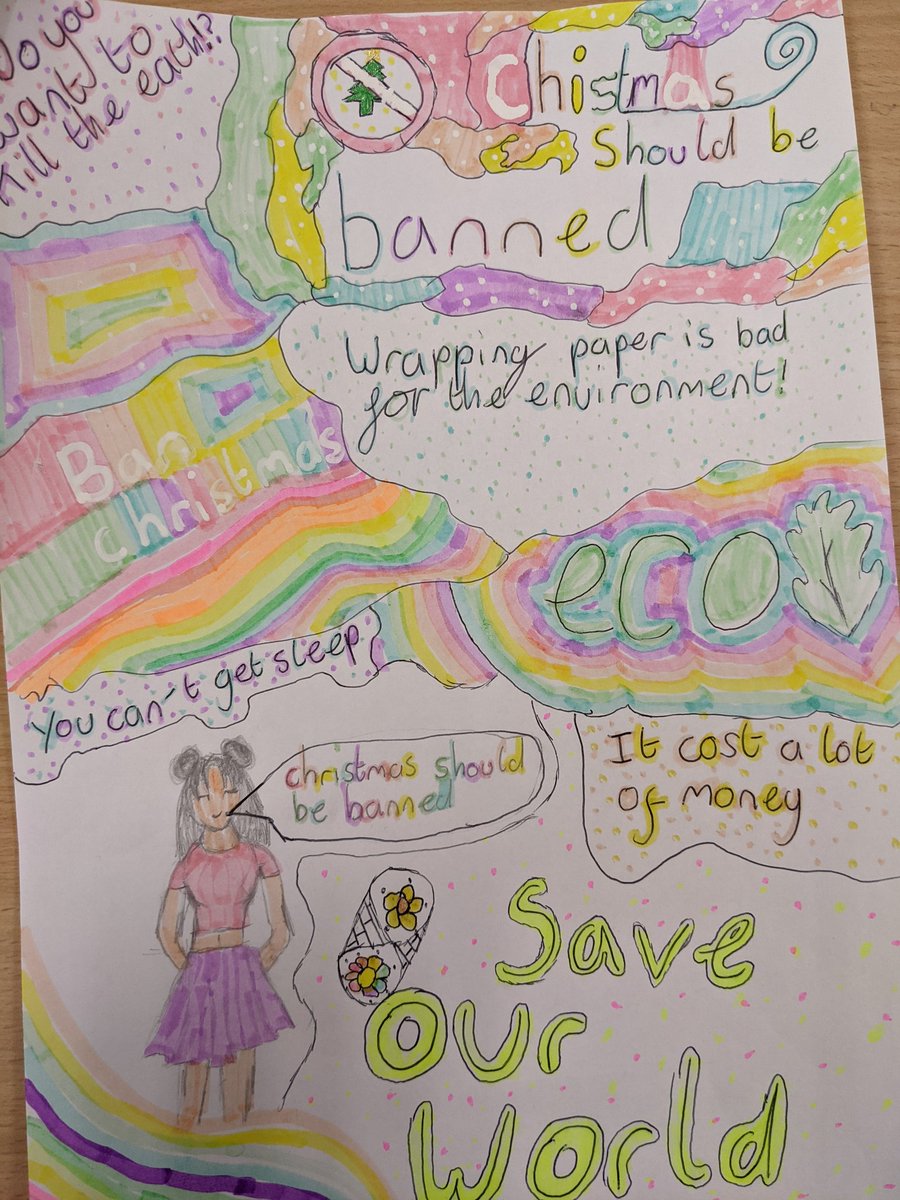 Do you
want to
kill the eath!?
Chistmas
should be
banned
Wrapping paper is bad
for the environment!
Ban
christmas
eco
You can't get sleep
christmas should
be banned
It cost a lot
of money
Save
Our
World